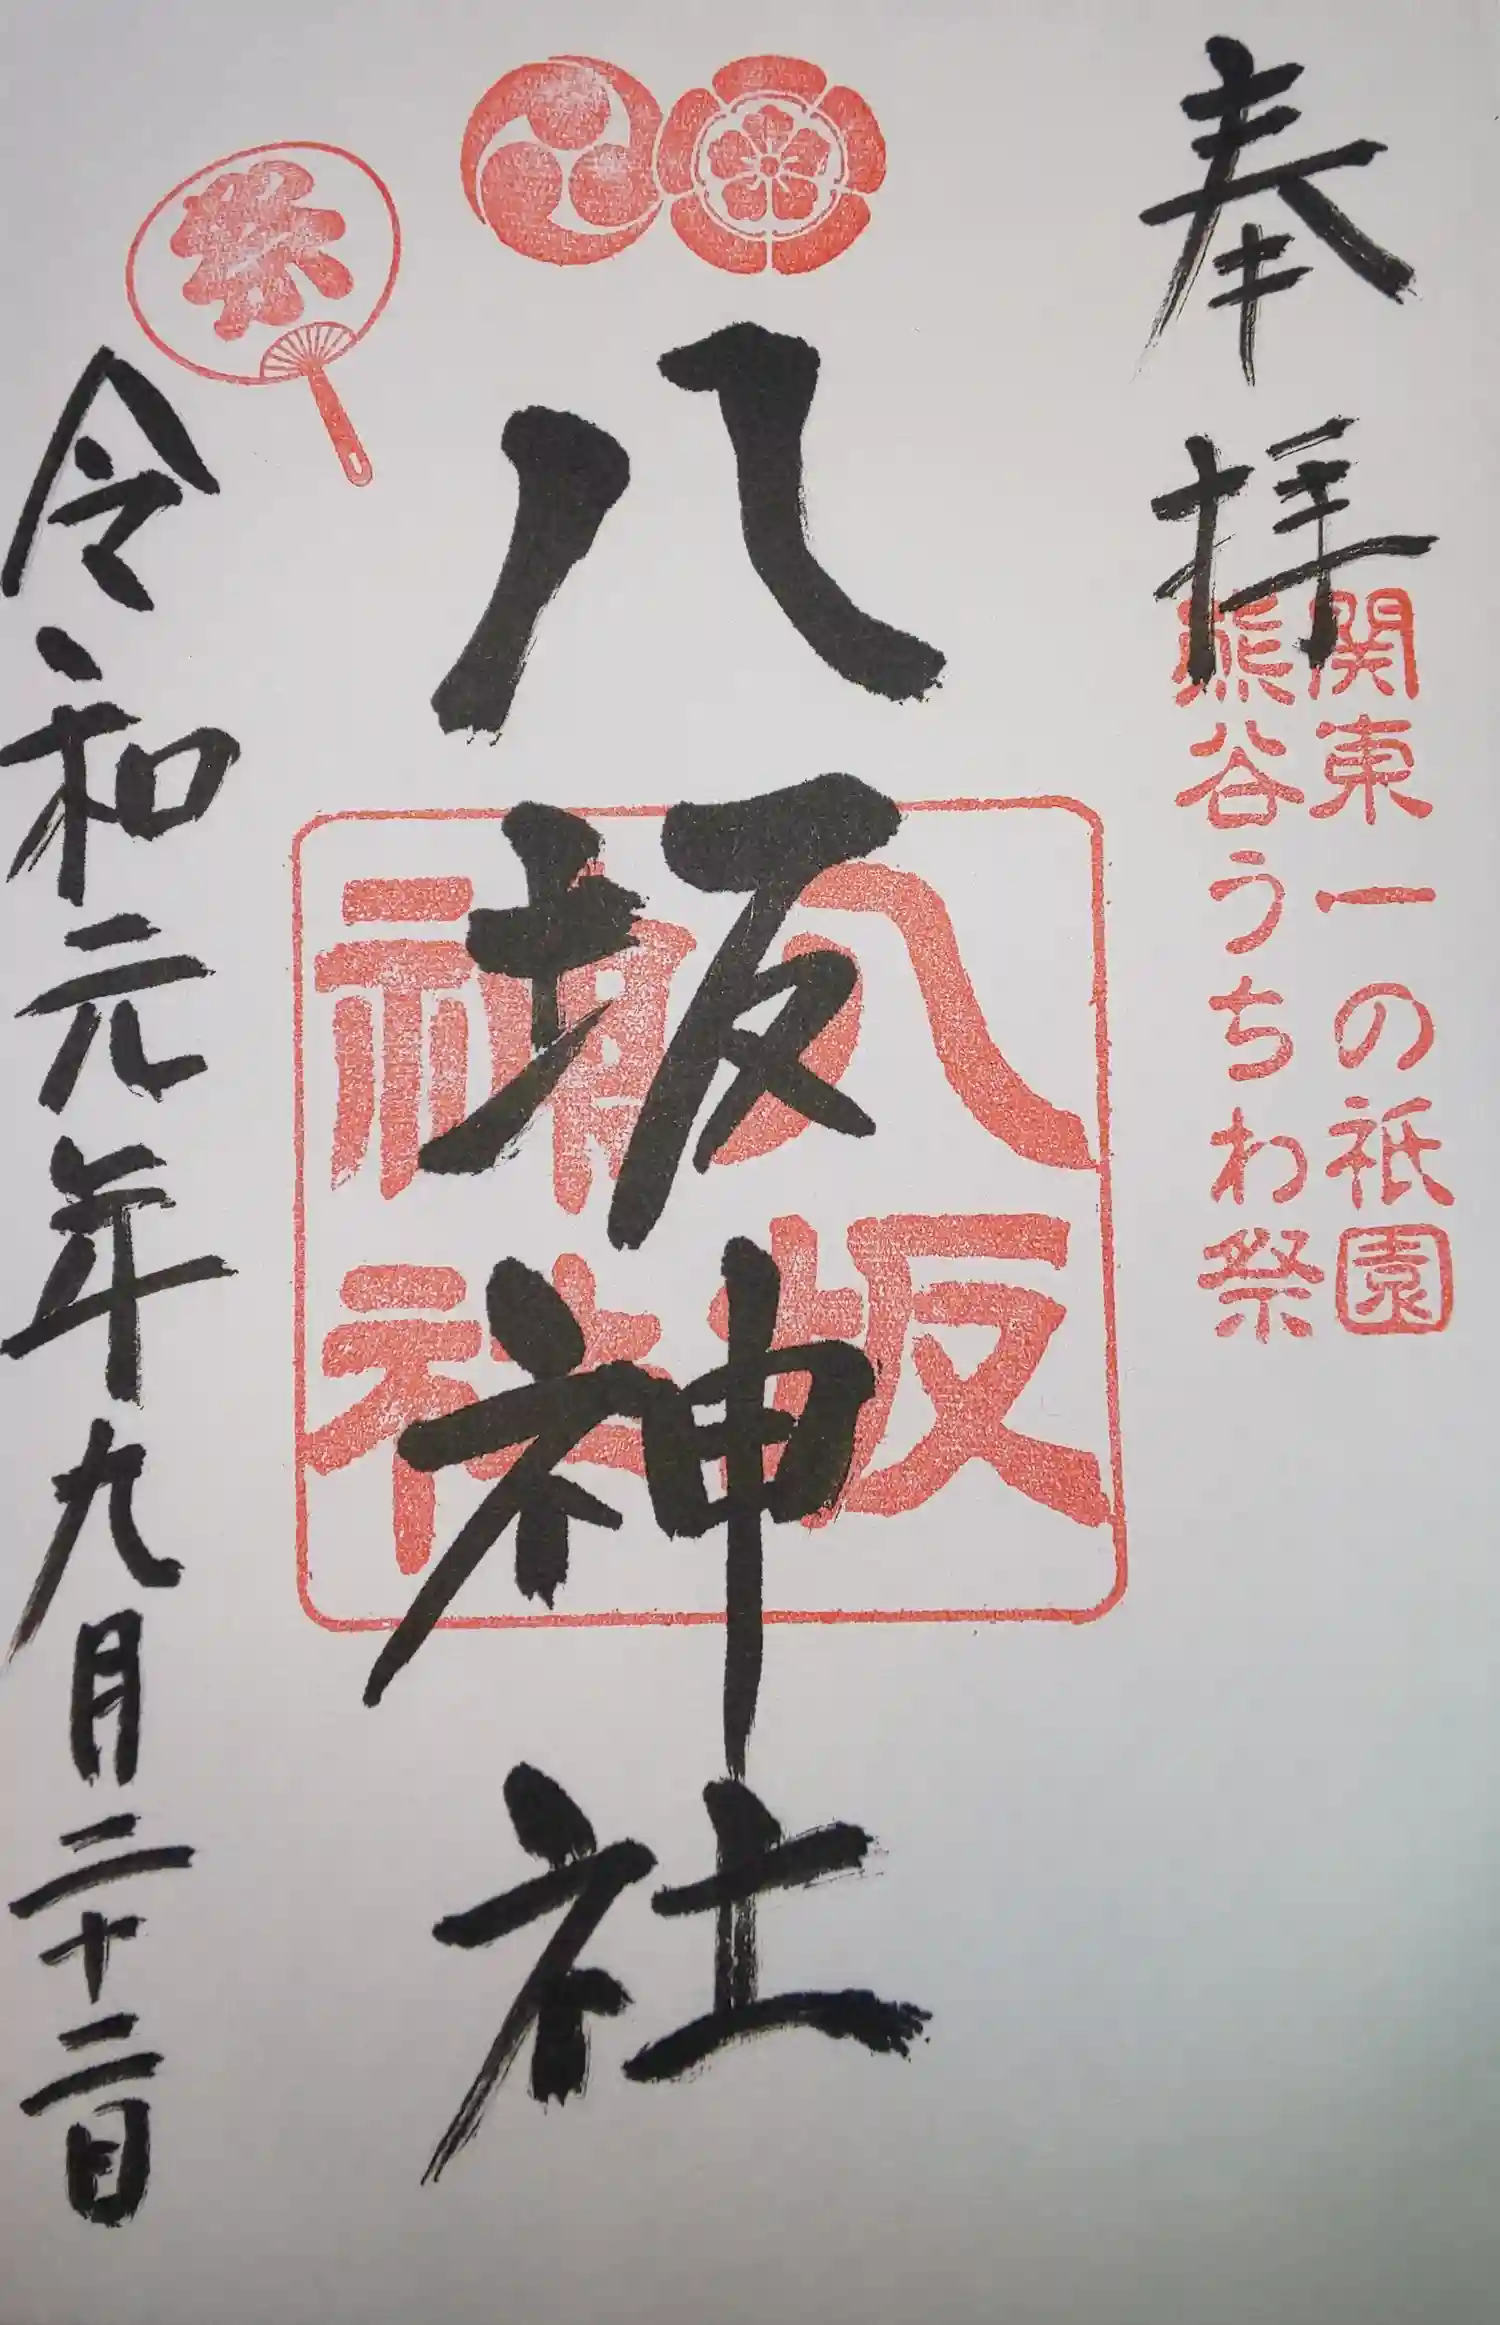 奉拝
関東一の祇園
熊谷うちわ祭
八坂神社
八坂
神社
祭
令和元年九月二十二日